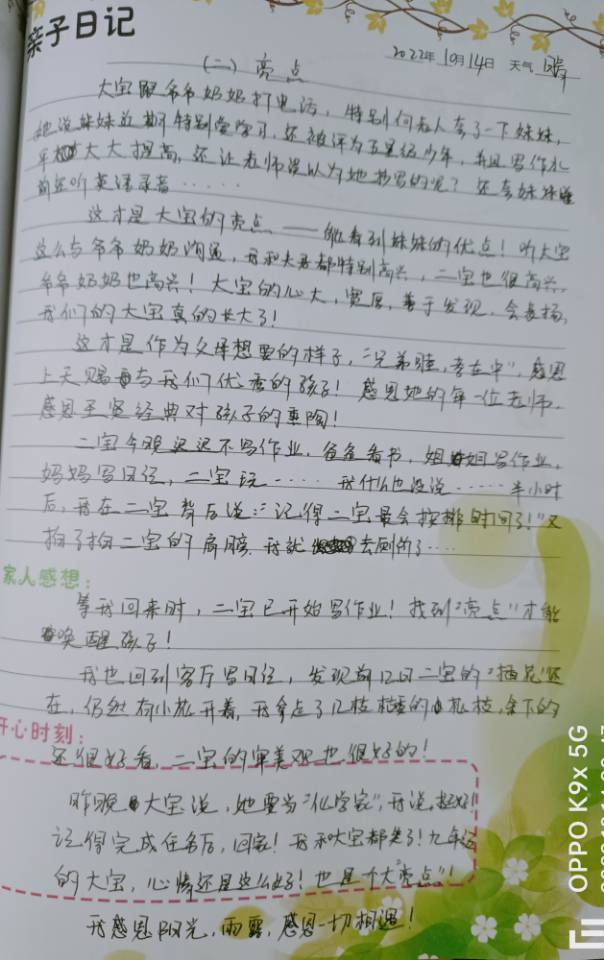 亲子日记
2022年 10月14日 天气 晴
(二) 亮点
大宝跟爷爷奶奶打电话，特别向老人夸了一下妹妹，
她说妹妹近期特别爱学习，还被评为五星级少年，并且写作水
平大大提高，还让老师误以为她抄写的呢？还夸妹妹睡
前还听英语录音……
这才是大宝的亮点——能看到妹妹的优点！听大宝
这么与爷爷奶奶沟通，我和大君都特别高兴，二宝也很高兴，
爷爷奶奶也高兴！大宝的心大，宽厚，善于发现，会表扬，
我们的大宝真的长大了！
这才是作为父母想要的样子，“兄弟睦，孝在中”，感恩
上天赐与我们优秀的孩子！感恩她的每一位老师，
感恩圣贤经典对孩子的熏陶！
二宝今晚迟迟不写作业，爸爸看书，姐姐写作业，
妈妈写日经，二宝玩……我什么也没说……半小时
后，我在二宝背后说：“记得二宝最会安排时间了！”又
拍了拍二宝的肩膀，我就去厕所了……
家人感想：
等我回来时，二宝已开始写作业！找到“亮点”才能
唤醒孩子！
我也回到客厅写日经，发现前几日二宝的“插花”还
在，仍然有小花开着，我拿走了几枝的小花枝，余下的
开心时刻：
还很好看，二宝的审美观也很好的！
昨晚大宝说，她要当“化学家”，我说，
记得完成任务后，回家！我和大宝都笑了！九年
的大宝，心情还是这么好！也是个大“亮点”！
我感恩阳光，雨露，感恩一切相遇！
OPPO K9x 5G